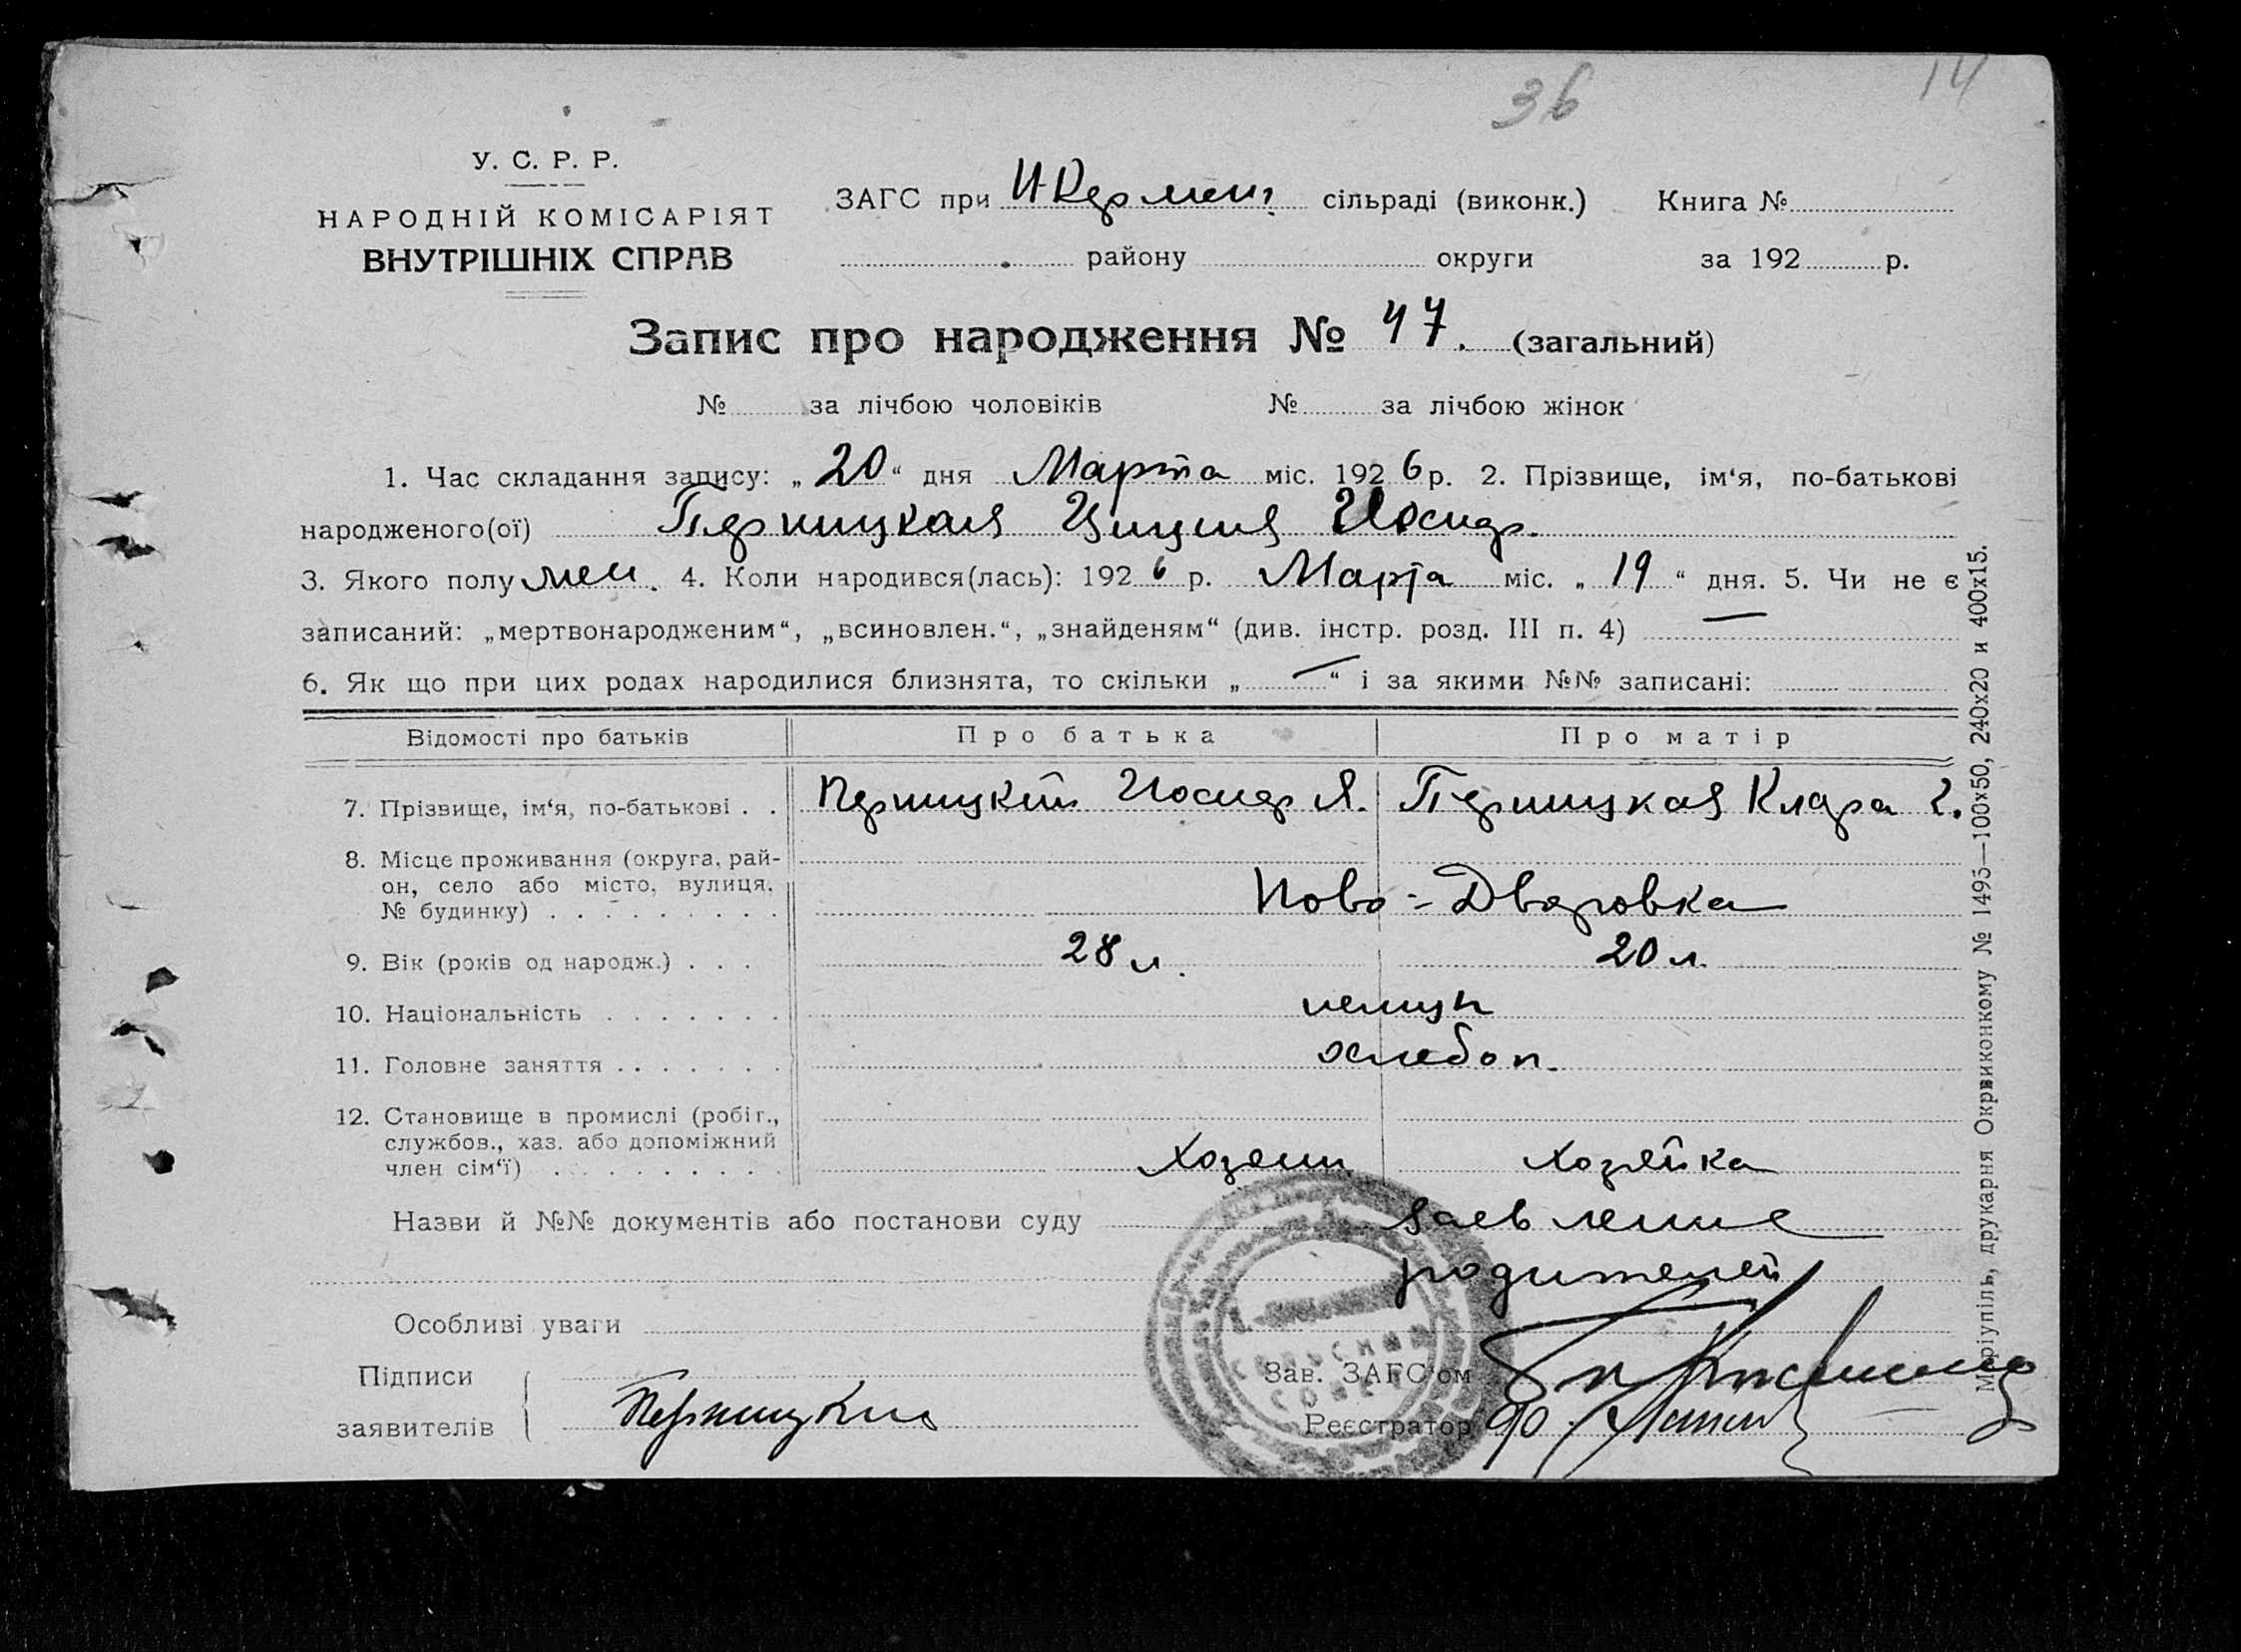 36
14
У. С. Р. Р.
НАРОДНІЙ КОМІСАРІЯТ
ВНУТРІШНІХ СПРАВ
ЗАГС при сільраді (виконк.) Книга №
району округи за 192 р.
Запис про народження № 47. (загальний)
№ за лічбою чоловіків № за лічбою жінок
1. Час складання запису: „ 20 “ дня Марта міс. 192 6 р. 2. Прізвище, ім‘я, по-батькові
народженого(ої) Перницкая
3. Якого полу 4. Коли народився(лась): 192 6 р. Марта міс. „ 19 “ дня. 5. Чи не є
записаний: „мертвонародженим“, „всиновлен.“, „знайденям“ (див. інстр. розд. III п. 4) —
6. Як що при цих родах народилися близнята, то скільки „ — “ і за якими №№ записані:
Відомості про батьків Про батька Про матір
7. Прізвище, ім‘я, по-батькові . . Перницкий Иосиф Я. Перницкая Клара
8. Місце проживання (округа, рай-
он, село або місто, вулиця,
№ будинку) . . . . . . . . . Ново-Дворовка
9. Вік (років од народж.) . . . 28 л. 20 л.
10. Національність . . . . . . . немцы
11. Головне заняття . . . . . . . хлебоп.
12. Становище в промислі (робіт.,
службов., хаз. або допоміжний
член сім‘ї) . . . . . . . . . Хозяин Хозяйка
Назви й №№ документів або постанови суду заевление
родителей
Особливі уваги
Підписи
заявителів Перницкий
Зав. ЗАГС‘ом
Реєстратор
СЕЛЬСКИЙ
СОВЕТ
Маріупіль, друкарня Окрвиконкому № 1493—100х50, 240х20 и 400х15.